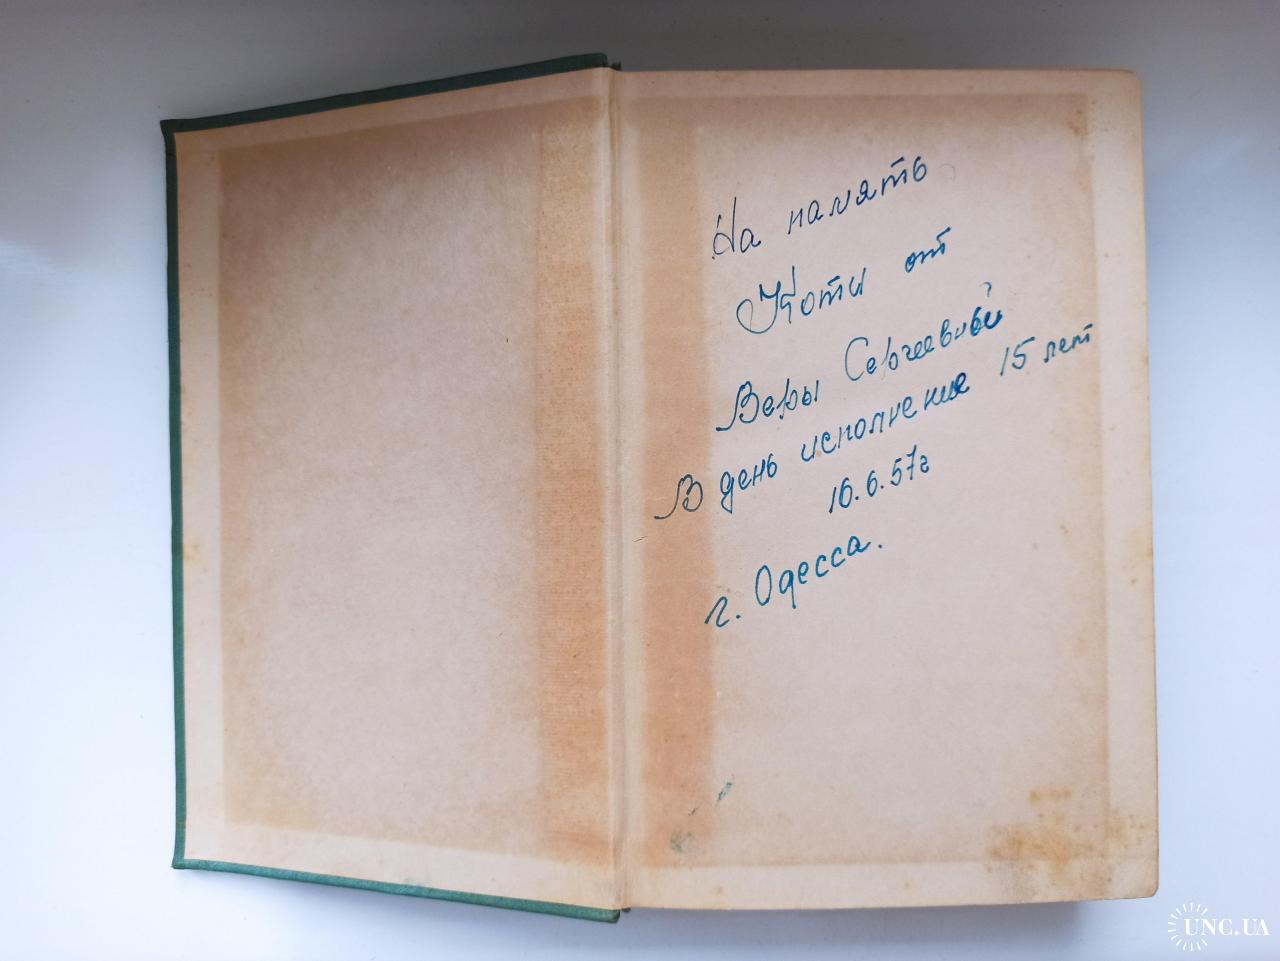 На память
Коти от
Веры Сергеевны
В день исполнения 15 лет
16.6.57г
г. Одесса.
UNC.UA